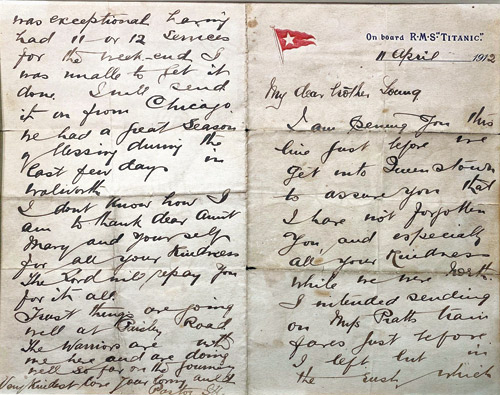 On board R.M.S. "TITANIC."
11 April 1912
My dear brother Young
I am Penning You this
line just before we
get into Queenstown
to assure you that
I have not forgotten
You and especially
all Your Kindness
while we were North.
I intended sending
on Miss Pratts train
fares just before
I left but in
the rush which
was exceptional having
had 11 or 12 Services
for the week-end I
was unable to get it
done. I will send
it on from Chicago
We had a great Season
of blessing during the
last few days in
Walworth
I don't know how I
am to thank dear Aunt
Mary and Yourself
for all your Kindness
The Lord will repay You
for it all.
Trust things are going
well at Paisley Road
The Warriors are with
me here and are doing
well so far on the Journey
Very Kindest love Your loving Auld
Pastor